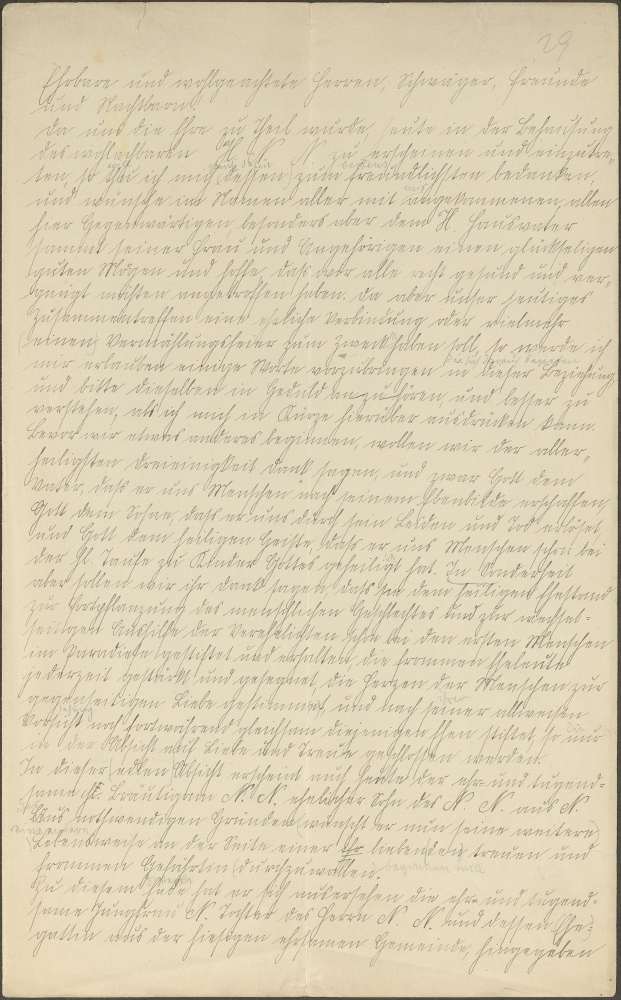 29
Ehrbare und wohlgeachtete Herren, Schwäger, Freunde
und Nachbarn!
Da uns die Ehre zu Theil wurde, heute in der Behausung
des wohlachtbaren N. N. zu erscheinen und einzutre-
ten, so thu ich mich dessen zum freundlichsten bedanken,
und wünsche im Namen aller mit angekommenen, allen
hier Gegenwärtigen, besonders aber dem H. Hausvater
sammt seiner Frau und Angehörigen einen glückseligen
guten Morgen und hoffe, daß wir alle recht gesund und ver-
gnügt möchten angetroffen haben. Da aber unser heutiges
Zusammentreffen eine eheliche Verbindung oder vielmehr
(einen) Vermählungsfeier zum Zweck haben soll, so werde ich
mir erlauben einige Worte vorzubringen in dieser Beziehung,
und bitte dieselben in Geduld anzuhören, und besser zu
verstehen, als ich mich in Kürze hierüber ausdrücken kann.
Bevor wir etwas anderes beginnen, wollen wir der aller-
heiligsten Dreieinigkeit Dank sagen, und zwar Gott dem
Vater, daß er uns Menschen nach seinem Ebenbilde erschaffen,
Gott dem Sohne, daß er uns durch sein Leiden und Tod erlöset,
und Gott dem heiligen Geiste, daß er uns Menschen schon bei
der hl. Taufe zu Kinder Gottes geheiligt hat. In Sonderheit
aber sollen wir ihr Dank sagen, daß sie den heiligen Ehestand
zur Fortpflanzung des menschlichen Geschlechtes und zur wechsel-
seitigen Aushilfe der Verehelichten schon bei den ersten Menschen
im Paradiese gestiftet und erhalten, die frommen Eheleute
jederzeit gestärkt und gesegnet, die Herzen der Menschen zur
gegenseitigen Liebe gestimmt, und nach seiner allweisen
Vorsicht noch fortwährend gleichsam diejenigen Ehen stiftet, so nur
in der Absicht auf Liebe und Treue geschlossen werden.
In dieser (edlen) Absicht erscheint auch heute der ehr- und tugend-
same H. Bräutigam N. N. ehelicher Sohn des N. N. aus N.
Aus nothwendigen Gründen (wünscht er nun seine weitere)
Lebensweise an der Seite einer ihn liebenden treuen und
frommen Gefährtin (durchzuwallen.
Zu diesem Ende hat er sich ausersehen die ehr- und tugend-
same Jungfrau N. Tochter des Herrn N. N. und dessen (Ehe-)
gattin aus der hiesigen ehrsamen Gemeinde, hingegeben